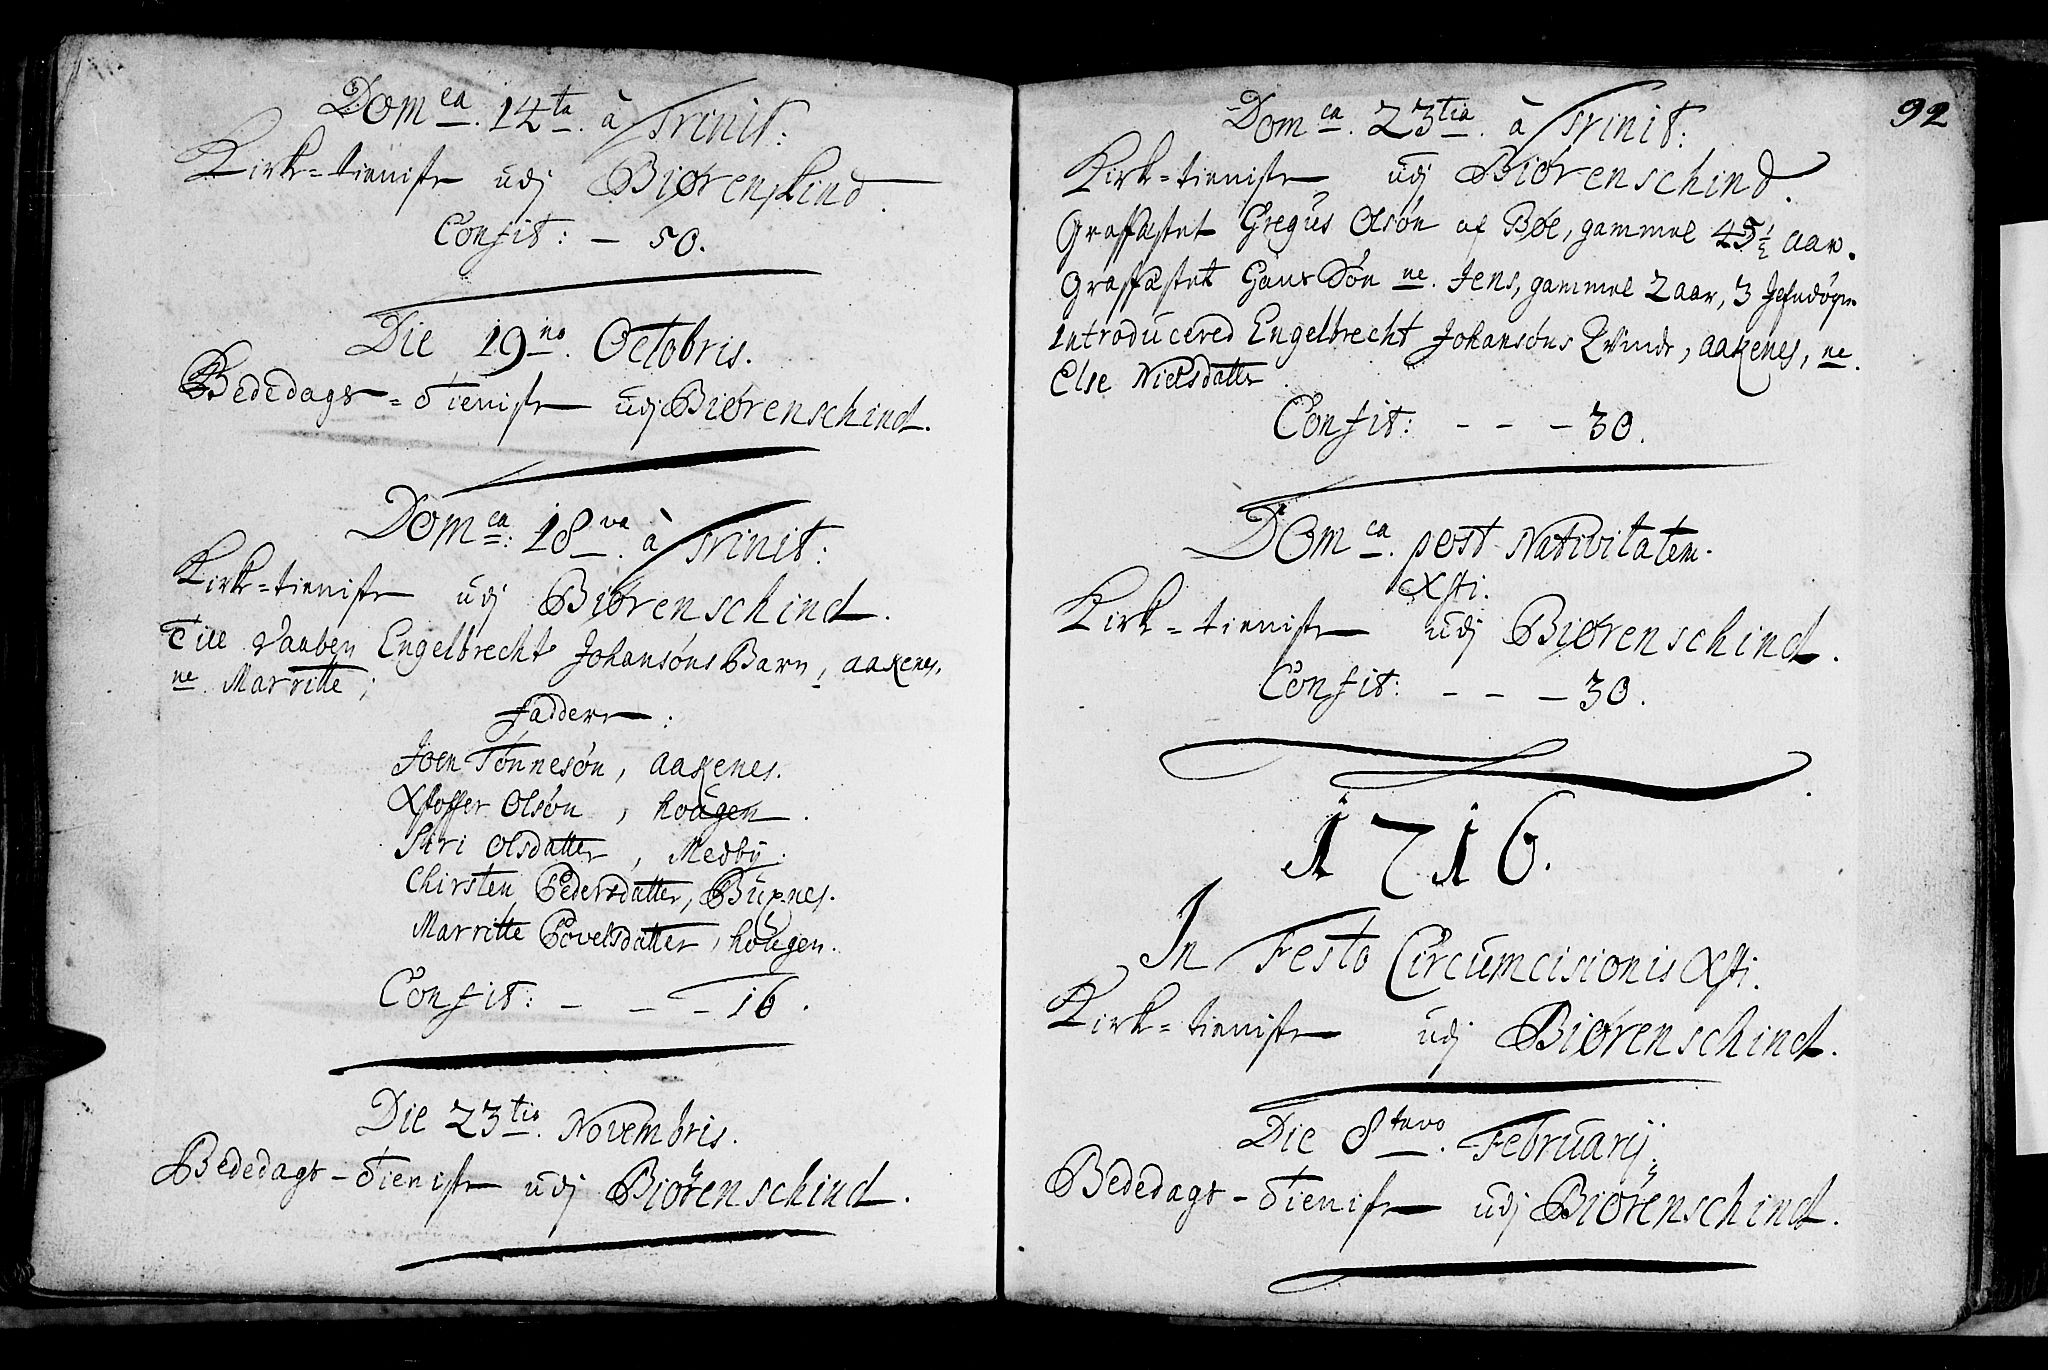 Dom ca. 14 ta. à Trinit:
Kirke=tieniste udj Biørenskind.
Confit: – 50.
Die 19 no. Octobris.
Bededags=Tieniste udj Biørenschind.
Dom ca: 18 va. à Trinit:
Kirke=tieniste udj Biørenschind.
Till Daaben Engelbrecht Johansøns Barn, aaxenes,
ne. Marritte;
Faddere:
Joen Tønnesøn, aaxenes.
Xstoffer Olsøn, hougen.
Siri Olsdatter, Medbÿ.
Chirsten Pedersdatter, Buxnes.
Marritte Povelsdatter, hougen.
Confit: – – – 16.
Die 23 tio. Novembris.
Bededags-Tieniste udj Biørenschind.
92
Dom ca. 23 tia. à Trinit:
Kirke=tieniste udj Biørenschind.
Graffæstet Gregus Olsøn af Bøe, gammel 45½ aar.
Graffæstet Hans Søn ne. Jens, gammel 2 aar, 3
Introducered Engelbrecht Johansøns Qvinde, aaxenes, ne.
Else Nielsdatter
Confit: – – – 30.
Dom ca. post Nativitatem.
Xsti.
Kirke=tieniste udj Biørenschind.
Confit: – – – 30.
1716.
In Festo Circumcisionis Xsti.
Kirke=tieniste udj Biørenschind.
Die 8 tavo. Februarij.
Bededags-Tieniste udj Biørenschind.